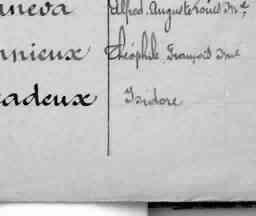 nneva Alfred, Auguste Louis Me
nnieux Théophile, François
adeux Isidore